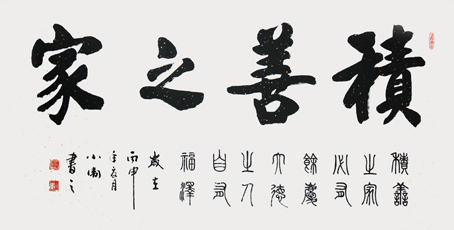 積善之家
積善
之家
必有
餘慶
大德
之人
自有
福澤
歲在
丙申
年夏月
小
書之